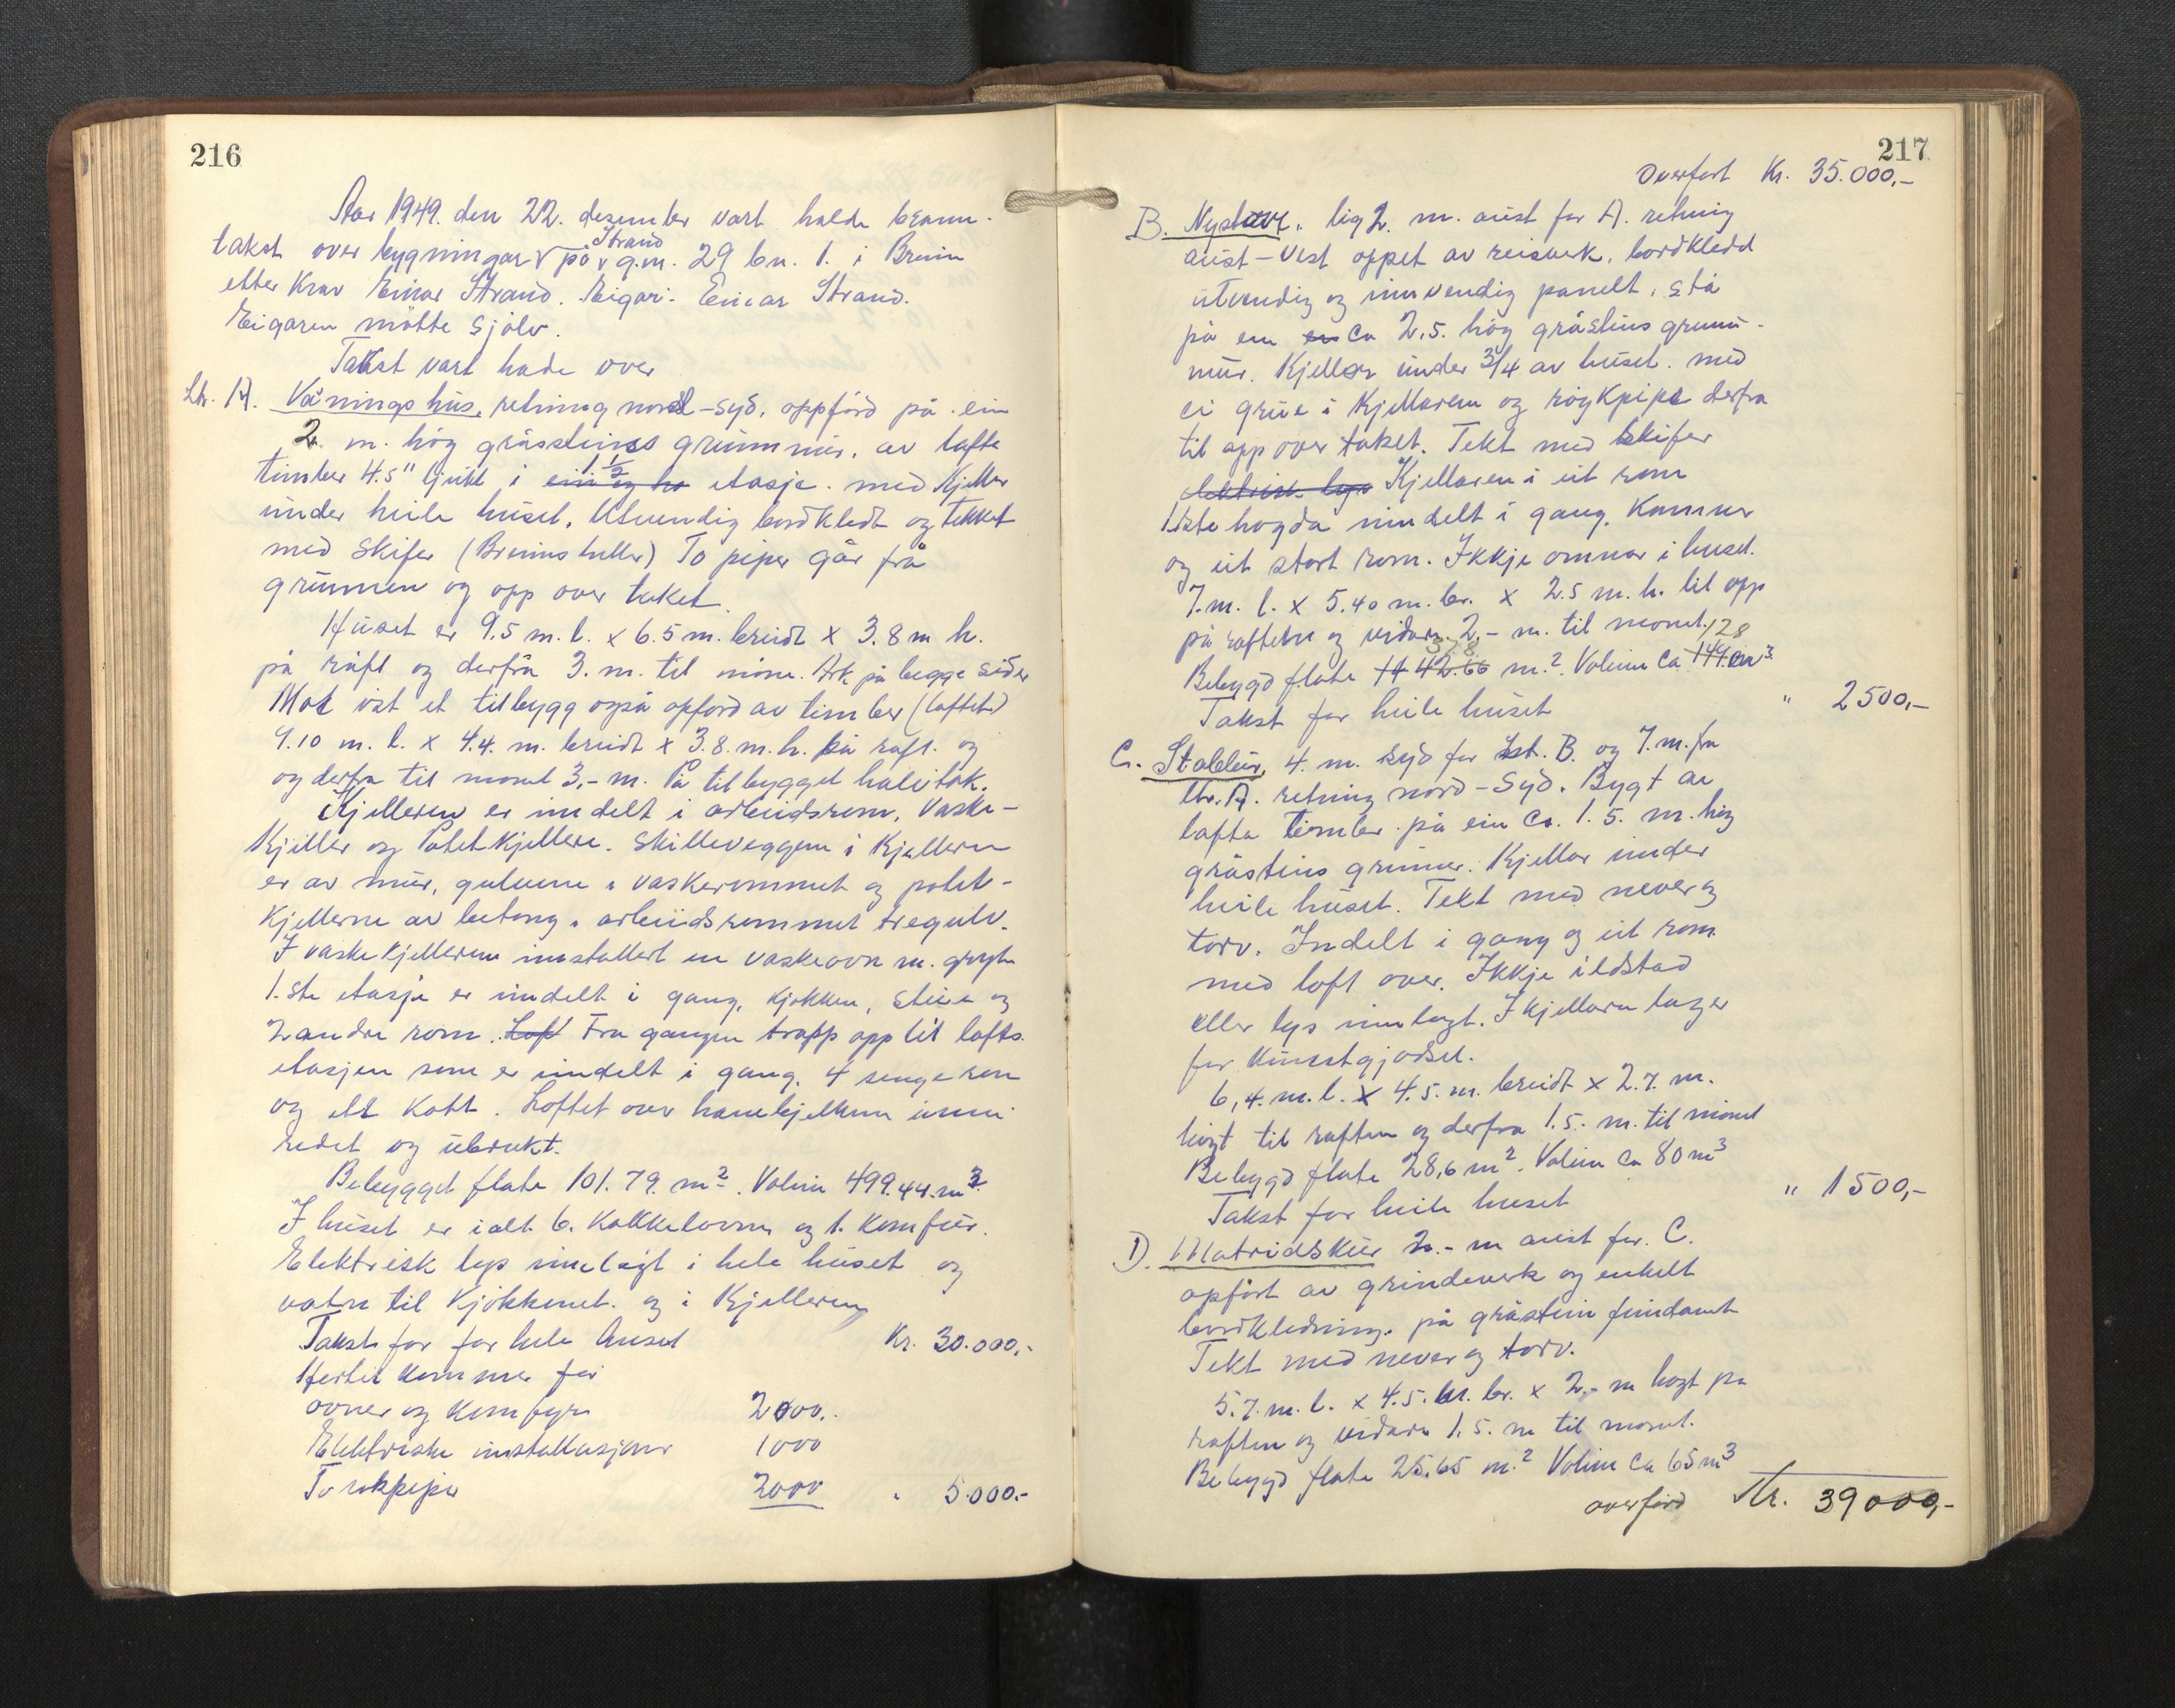 216
Aar 1949. den 22. desember vart halde brann-
takst over bygningar på Strand g.nr. 29 bn. 1. i Breim
etter Krav Einar Strand. Eigar: Einar Strand.
Eigaren møtte sjølv.
Takst vart hade over
Ltr. A. Vånings hus, retning nord-syd, oppførd på ein
2 m. høg gråsteins grunnmur, av lafte
timber 4.5" tjukt i 1 1/2 etasje. med Kjeller
under heile huset. Utvendig bordkledt og tekket
med Skifer (Breims heller) To piper går frå
grunnen og opp over taket.
Huset er 9.5 m. l. x 6.5 m. breidt x 3.8 m h.
på råft og derfrå 3. m. til møne. Ark på begge sider
Mot vst et tilbygg også opførd av timber (laftet)
9.10 m. l. x 4.4. m. breidt x 3.8. m. h. på raft. og
og derfra til mønet 3,- m. På tilbygget halvtak.
Kjelleren er inndelt i arbeidsrom, Vaske-
Kjeller og Potetkjellere. Skilleveggen i Kjelleren
er av mur, gulvene i vaskerommet og potet-
Kjellerne av betong, arbeidsrommet tregulv.
I vaskekjelleren innstallert en vaskeovn m. gryte
1.ste etasje er inndelt i gang, Kjøkken, Stue og
2 andre rom. Loft Fra gangen trapp opp til lofts
etasjen som er inndelt i gang, 4 senge rom
og ett Kott. Loftet over hanebjelkene uinn-
redet og ubrukt.
Bebygget flate 101.79. m². Volum 499.44. m³
I huset er ialt 6. Kakkelovnn og 1. Komfur.
Elektrisk lys innlagt i hele huset og
vatn til Kjøkkenet. og i Kjelleren
Takst for for hele huset Kr. 30.000,-
Hertil kommer for
ovner og Komfyr 2000,.
Elektriske innstallasjoner 1000
To rokpiper 2000 " 5.000.-
217
Overført Kr. 35.000,-
B. Nystove, lig 2. m. aust for A. retning
aust-Vest oppet av reisverk, bordkledd
utvendig og innvendig panelt, stå
på em en ca 2,5. høg gråsteins grunn-
mur. Kjeller under 3/4 av huset. med
ei grue i Kjelleren og røykpipe derfra
til opp over taket. Tekt med skifer
elektrisk lys Kjellaren i eit rom
1ste høgda inndelt i gang, Kammer
og eit stort rom. Ikkje omnar i huset.
7. m. l. x 5.40 m. br. x 2.5 m. h. til opp
på raftetn og vidare 2,- m. til mønet. 128
37.8
Bebygd flate 14 42.66 m². Volum ca 144 m³
Takst for heile huset " 2500,-
C. Stabbur, 4. m. syd for Lit. B. og 7. m. fra
ltr. A. retning nord-Syd. Bygt av
lafta timber på ein Ca. 1.5. m. høg
gråsteins grunner. Kjellar under
heile huset. Tekt med never og
torv. Indelt i gang og eit rom
med loft over. Ikkje ildstad
eller lys innlagt. I kjellaren lager
for Kunstgjødsel.
6,4. m. l. x 4.5. m. breidt x 2.7. m.
høgt til raften og derfra 1.5.- m. til mønet
Bebygd flate 28,6 m². Volum ca 80 m³
Takst for heile huset " 1500,-
D. Matridskur 2.- m aust for. C.
opført av grindeverk og enkelt
bordkledning. på gråstein fundamt
Tekt med never og torv.
5.7. m. l. x 4.5. m. br. x 2,- m høgt på
raften og vidare 1,5. m til mønet.
Bebygd flate 25.65 m.² Volum ca 65 m³
overførd Kr. 39000,-